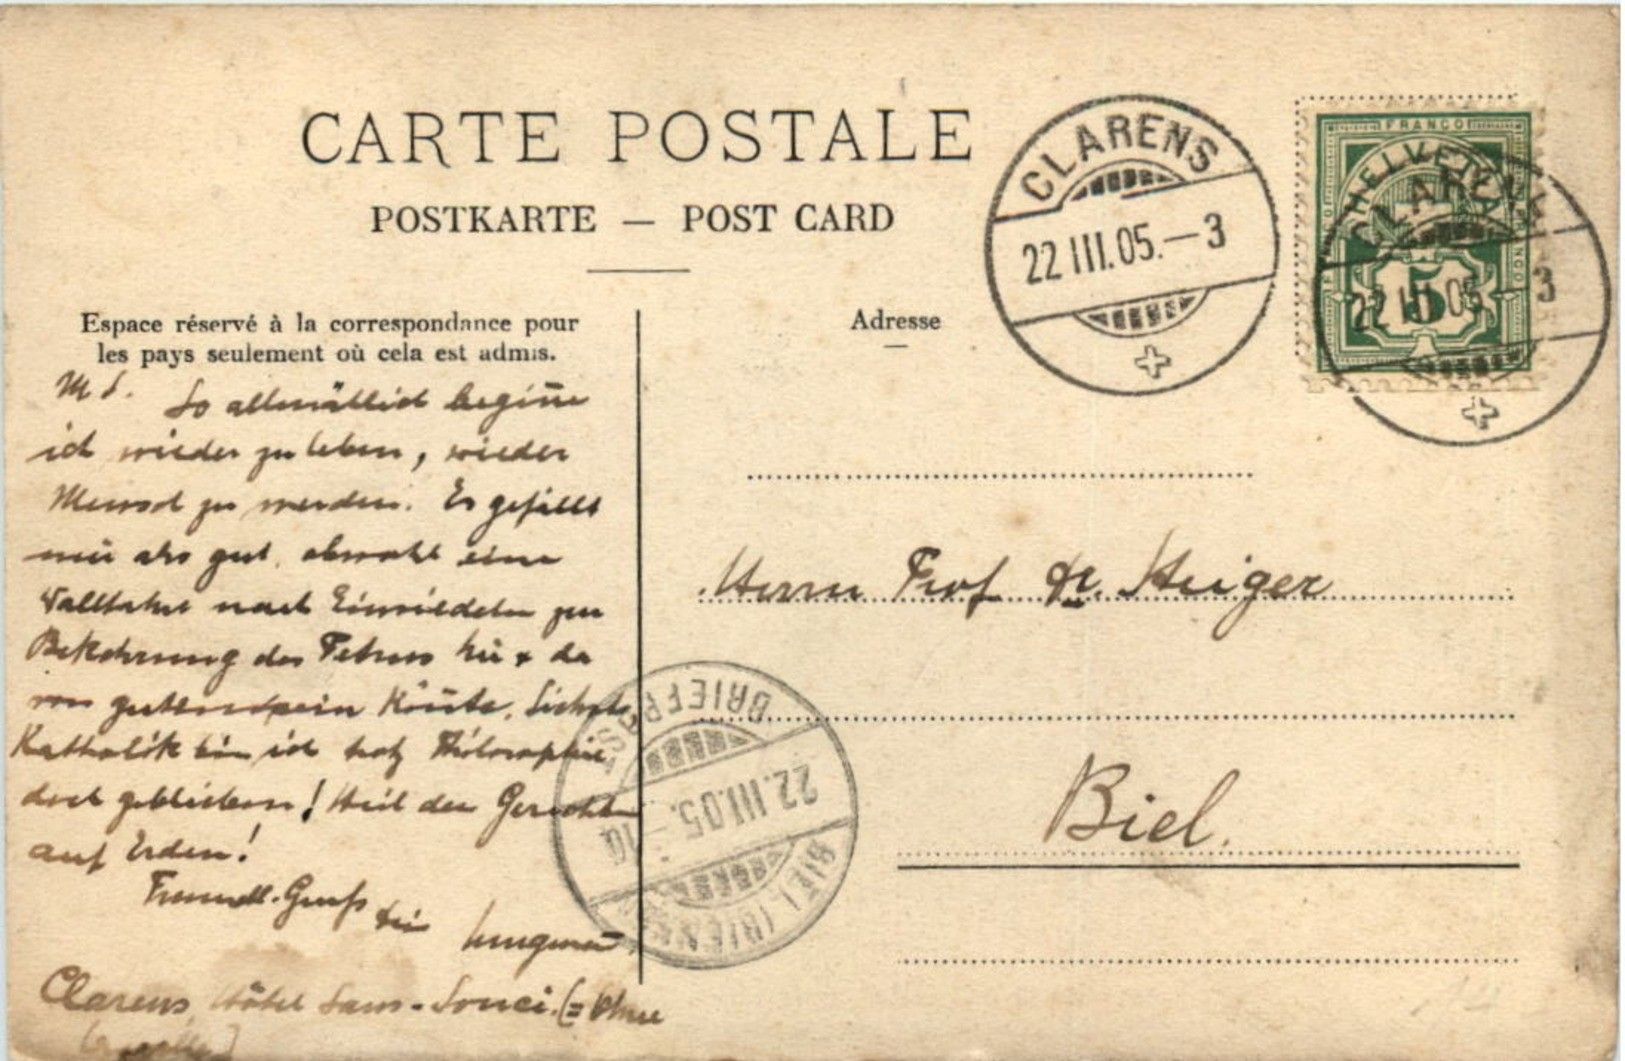 CARTE POSTALE
POSTKARTE — POST CARD
Espace réservé à la correspondance pour
les pays seulement où cela est admis.
Adresse
CLARENS
22 III.05.—3
FRANCO
HELVETIA
5
CLARENS
22 III 05 —3
M L. So allmählich begiñe
ich wieder zu leben, wieder
Mensch zu werden. Es gefällt
mir also gut, obwohl eine
Wallfahrt nach Einsiedeln zur
Bekehrung des Petrus hie & da
von gutem sein köñte. Lieber
Katholik bin ich trotz Philosophie
doch geblieben! Heil den Gerechten
auf Erden!
Freundl. Gruss
Dein
Clarens, Hôtel Sans-Souci. (= Ohne
Herrn Prof Dr. Heiger
Biel.
BIEL (BIENNE)
22.III.05.—10
BRIEF